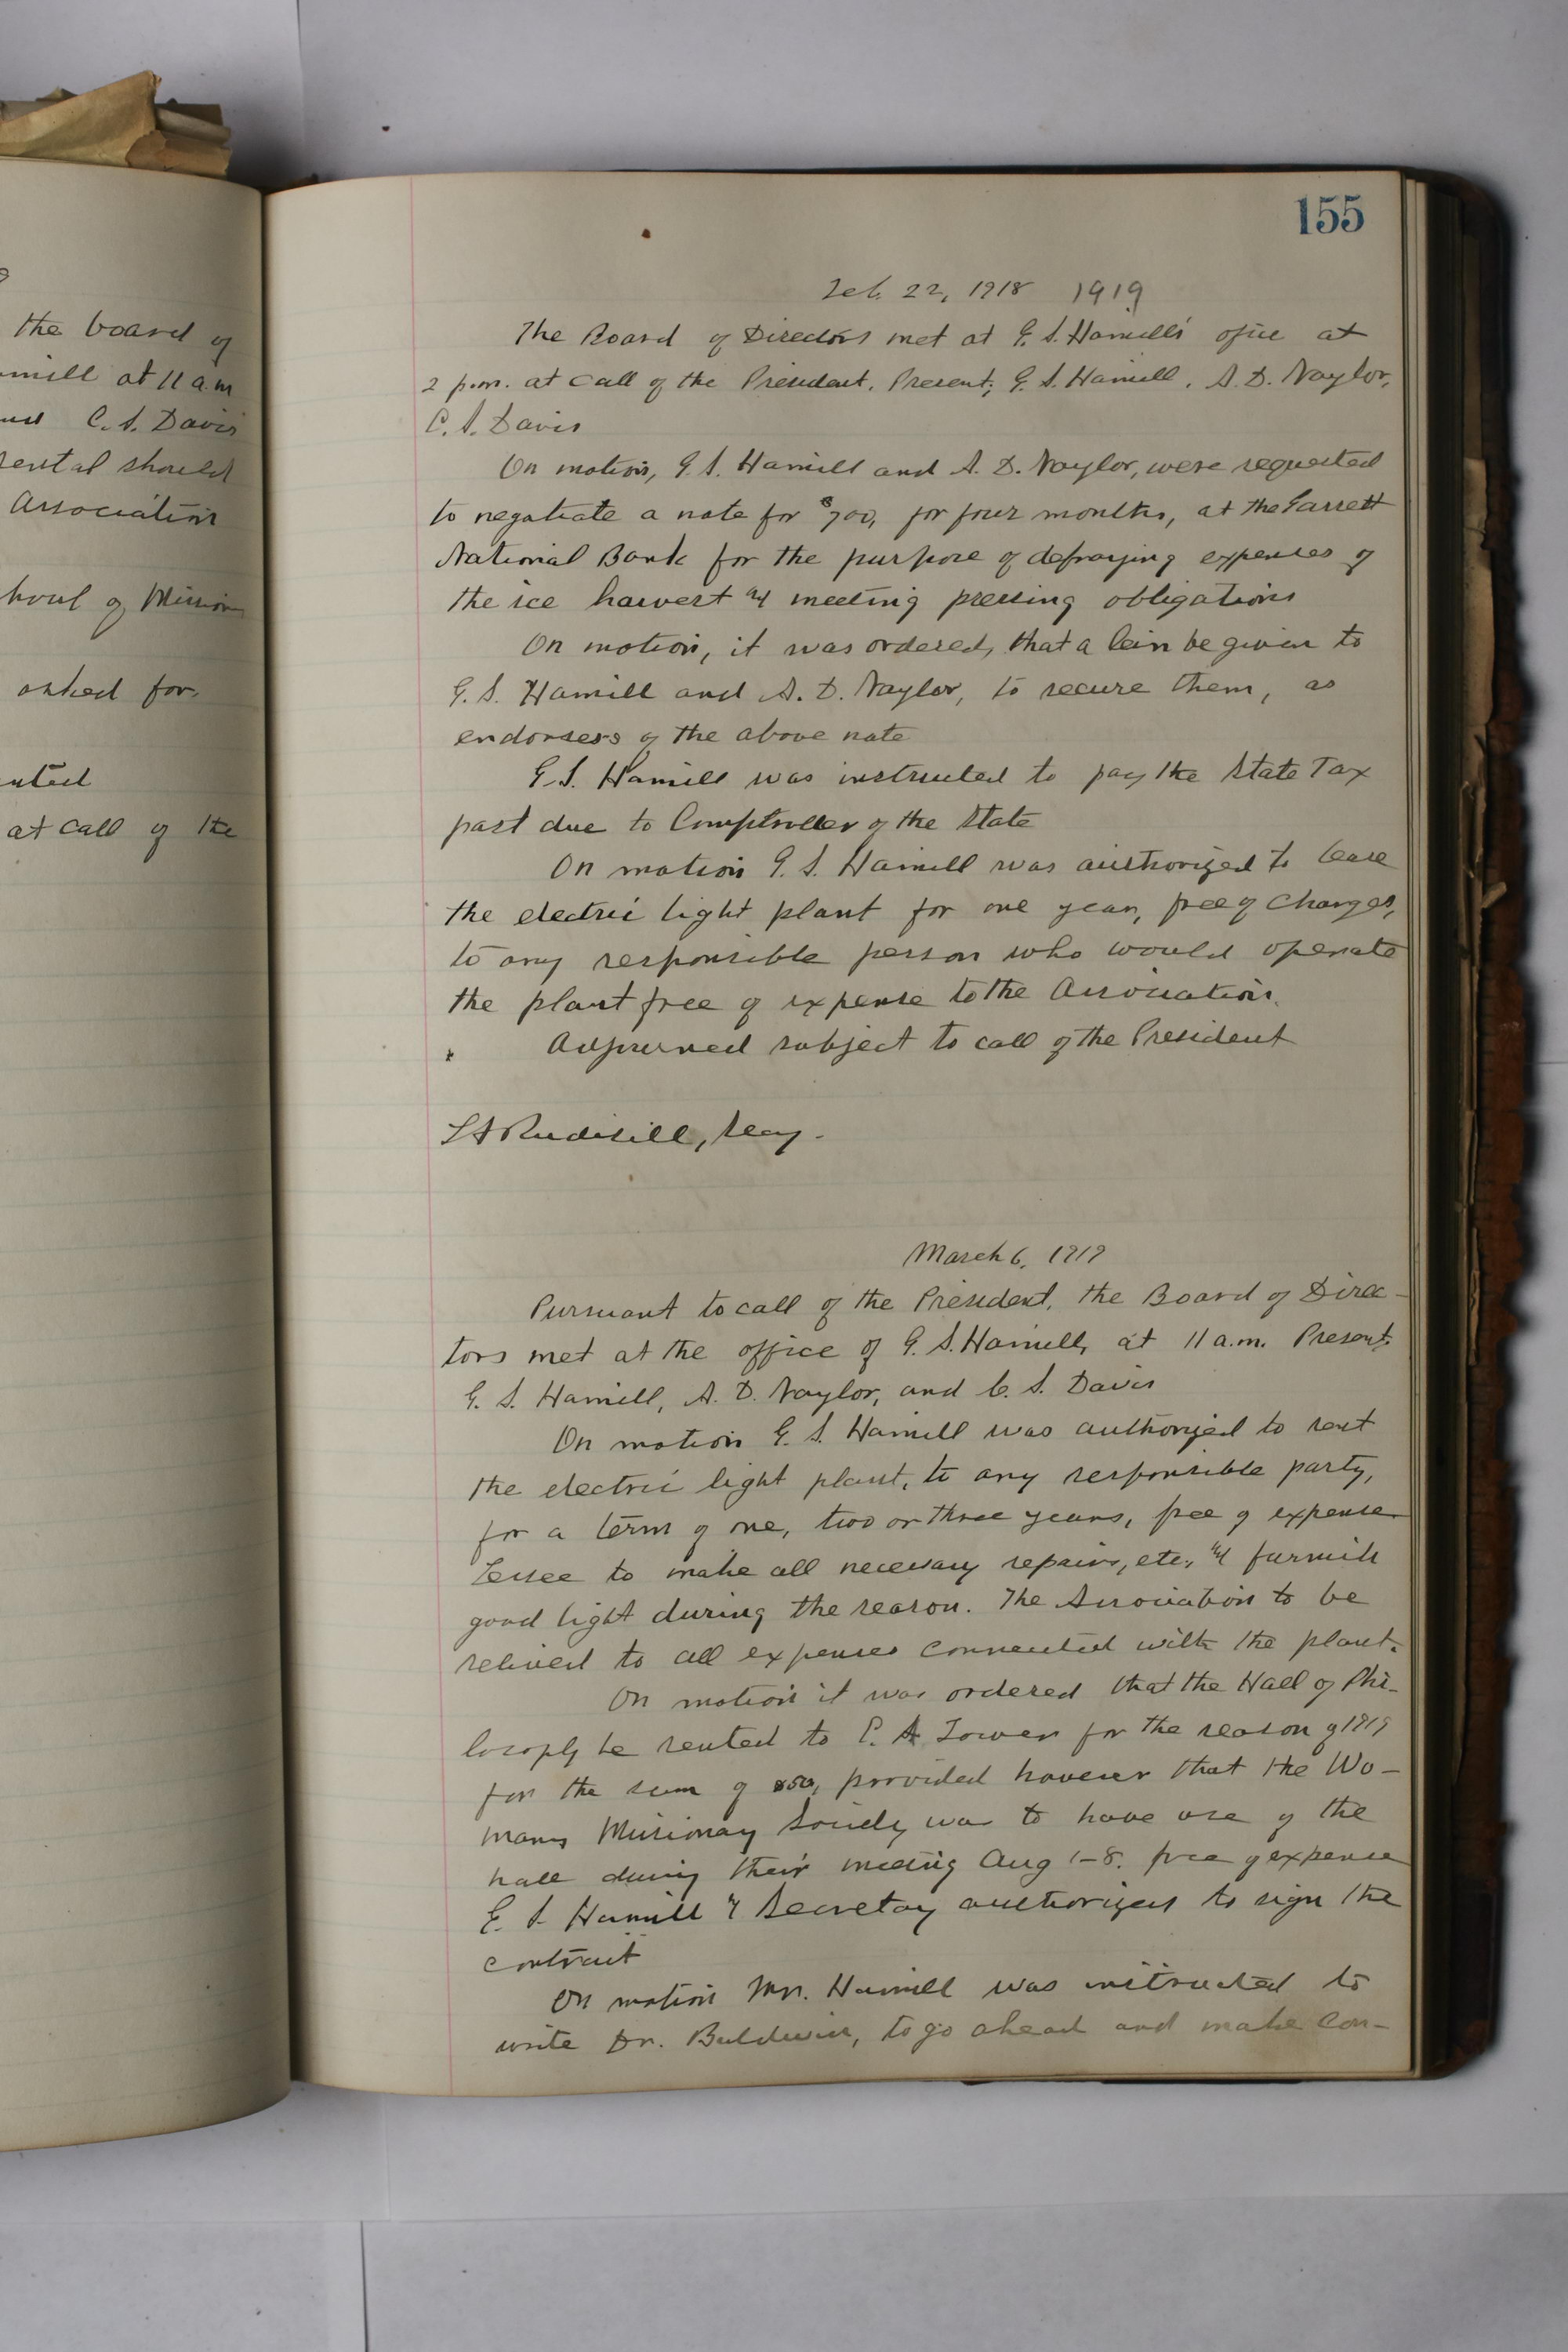 the board of
mill at 11 a.m
C. S. Davis
rental should
Association
of Mission
asked for,
at call of the
155
Feb. 22, 1918 1919
The Board of Directors met at G. S. Hamills' ofice at
2 p.m. at call of the President. Present; G. S. Hamill, A. D. Naylor,
C. S. Davis
On motion, G. S. Hamill and A. D. Naylor, were requested
to negatiate a note for $700, for four months, at the Garrett
National Bank for the purpose of defraying expenses of
the ice harvest and meeting pressing obligations
On motion, it was ordered, that a lein be given to
G. S. Hamill and A. D. Naylor, to secure them, as
endorsers of the above note
G. S. Hamill was instructed to pay the State Tax
past due to Comptroller of the State
On motion G. S. Hamill was authorized to lease
the electric light plant for one year, free of charges,
to any responsible person who would operate
the plant free of expense to the Association.
Adjourned subject to call of the President
L A Rudisill, Secy.
March 6, 1919
Pursuant to call of the President, the Board of Direc-
tors met at the office of G. S. Hamill, at 11 a.m. Present,
G. S. Hamill, A. D. Naylor, and C. S. Davis
On motion G. S. Hamill was authorized to rent
the electric light plant, to any responsible party,
for a term of one, two or three years, free of expense
Lessee to make all necessary repairs, etc., and furnish
good light during the season. The Association to be
relived to all expenses connected with the plant.
On motion it was ordered that the Hall of Phi-
losophy be rented to E. A. Lower for the season of 1919
for the sum of $50, provided however that the Wo-
mans Missionary Society was to have use of the
hall during their meeting Aug 1-8. free of expense
G. S. Hamill & Secretary authorized to sign the
contract
On motion Mr. Hamill was instructed to
write Dr. Baldwin, to go ahead and make con-